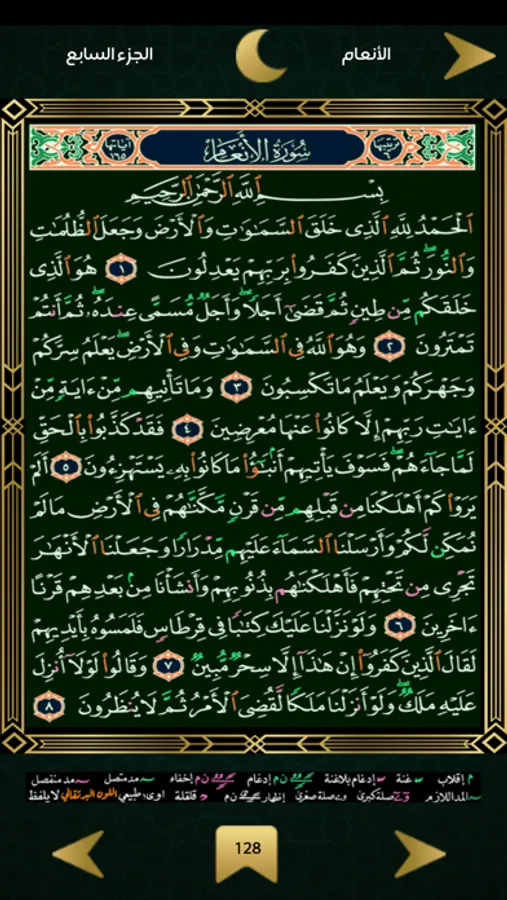 الأنعام
الجزء السابع
سُورَةُ الأَنْعَامِ
ترتيبها ٦
آياتها ١٦٥
بِسْمِ اللَّهِ الرَّحْمَٰنِ الرَّحِيمِ
الْحَمْدُ لِلَّهِ الَّذِي خَلَقَ السَّمَاوَاتِ وَالْأَرْضَ وَجَعَلَ الظُّلُمَاتِ
وَالنُّورَ ۖ ثُمَّ الَّذِينَ كَفَرُوا بِرَبِّهِمْ يَعْدِلُونَ ١ هُوَ الَّذِي
خَلَقَكُم مِّن طِينٍ ثُمَّ قَضَىٰ أَجَلًا ۖ وَأَجَلٌ مُّسَمًّى عِندَهُ ۖ ثُمَّ أَنتُمْ
تَمْتَرُونَ ٢ وَهُوَ اللَّهُ فِي السَّمَاوَاتِ وَفِي الْأَرْضِ ۖ يَعْلَمُ سِرَّكُمْ
وَجَهْرَكُمْ وَيَعْلَمُ مَا تَكْسِبُونَ ٣ وَمَا تَأْتِيهِم مِّنْ ءَايَةٍ مِّنْ
ءَايَاتِ رَبِّهِمْ إِلَّا كَانُوا عَنْهَا مُعْرِضِينَ ٤ فَقَدْ كَذَّبُوا بِالْحَقِّ
لَمَّا جَاءَهُمْ ۖ فَسَوْفَ يَأْتِيهِمْ أَنبَٰٓؤُا مَا كَانُوا بِهِ يَسْتَهْزِءُونَ ٥ أَلَمْ
يَرَوْا كَمْ أَهْلَكْنَا مِن قَبْلِهِم مِّن قَرْنٍ مَّكَّنَّاهُمْ فِي الْأَرْضِ مَا لَمْ
نُمَكِّن لَّكُمْ وَأَرْسَلْنَا السَّمَاءَ عَلَيْهِم مِّدْرَارًا وَجَعَلْنَا الْأَنْهَارَ
تَجْرِي مِن تَحْتِهِمْ فَأَهْلَكْنَاهُم بِذُنُوبِهِمْ وَأَنشَأْنَا مِن بَعْدِهِمْ قَرْنًا
ءَاخَرِينَ ٦ وَلَوْ نَزَّلْنَا عَلَيْكَ كِتَابًا فِي قِرْطَاسٍ فَلَمَسُوهُ بِأَيْدِيهِمْ
لَقَالَ الَّذِينَ كَفَرُوا إِنْ هَٰذَا إِلَّا سِحْرٌ مُّبِينٌ ٧ وَقَالُوا لَوْلَا أُنزِلَ
عَلَيْهِ مَلَكٌ ۖ وَلَوْ أَنزَلْنَا مَلَكًا لَّقُضِيَ الْأَمْرُ ثُمَّ لَا يُنظَرُونَ ٨
م إقلاب غنة إدغام بلاغنة ن م إدغام ن م إخفاء مد متصل مد منفصل
المد اللازم صلة كبرى صلة صغرى إظهار ن م قلقلة اوى: طبيعي اللون البرتقالي لا يلفظ
128